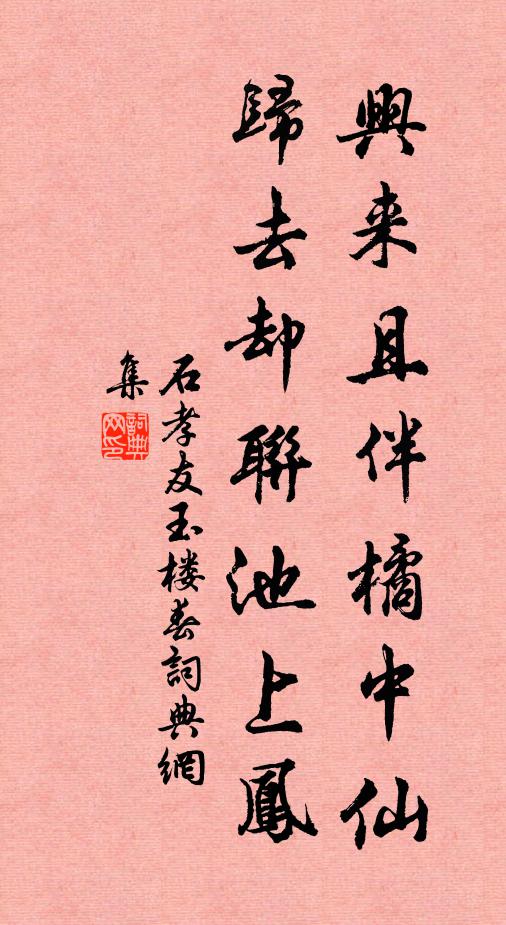 興来且伴橘中仙
歸去却聯池上鳳
石孝友玉楼春詞典網
集
詞典网印